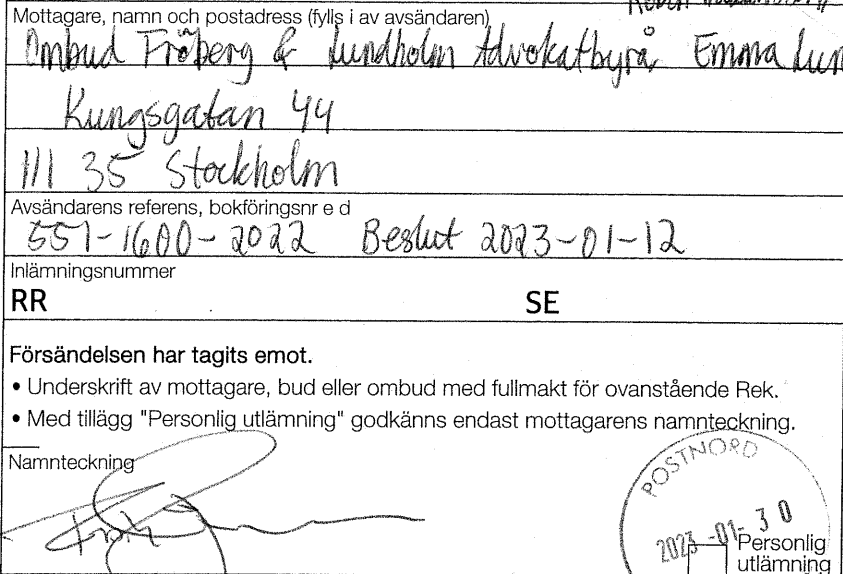 Mottagare, namn och postadress (fylls i av avsändaren)
Ombud Fröberg & Lundholm Advokatbyrå, Emma Lun
Kungsgatan 44
111 35 Stockholm
Avsändarens referens, bokföringsnr e d
551-1600-2022 Beslut 2023-01-12
Inlämningsnummer
RR SE
Försändelsen har tagits emot.
• Underskrift av mottagare, bud eller ombud med fullmakt för ovanstående Rek.
• Med tillägg "Personlig utlämning" godkänns endast mottagarens namnteckning.
Namnteckning
POSTNORD
2023-01-30
Personlig
utlämning